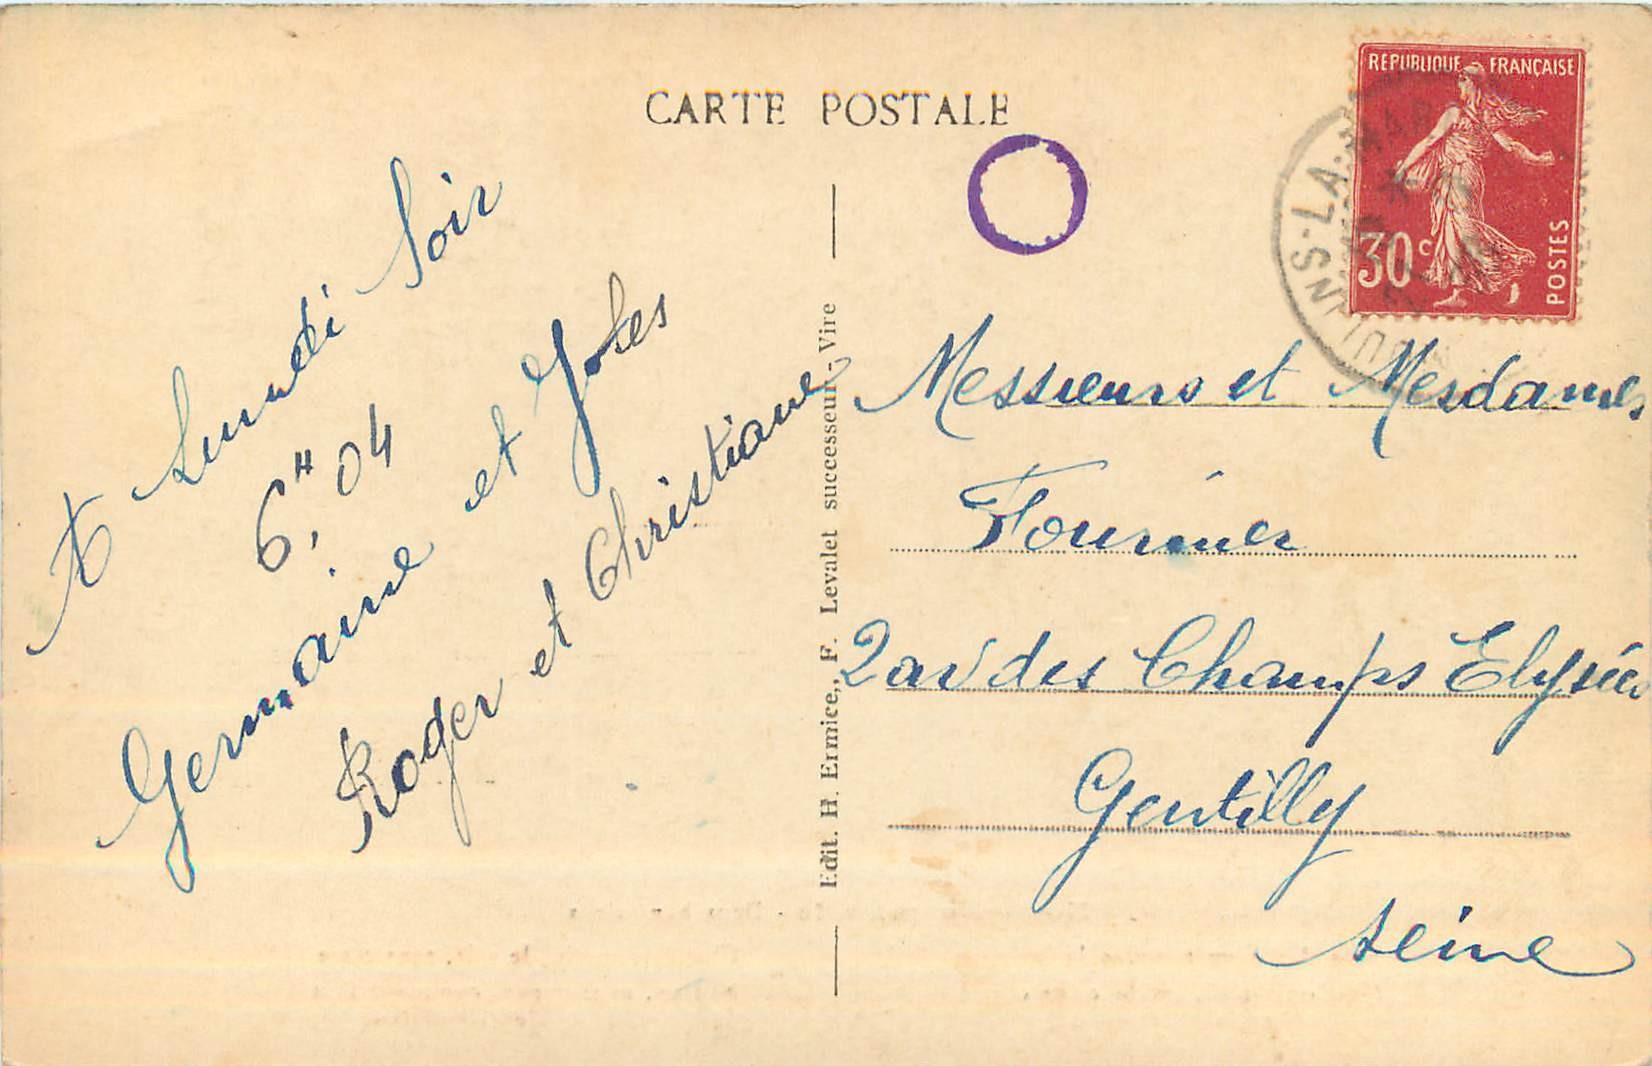 CARTE POSTALE
RÉPUBLIQUE FRANÇAISE
30c
POSTES
A Lundi Soir
6H,04
Germaine et
Roger et Christiane
Edit. H. Ermice, F. Levalet successeur - Vire
Messieurs et Mesdames
Fournier
2 av des Champs Elysées
Gentilly
Seine